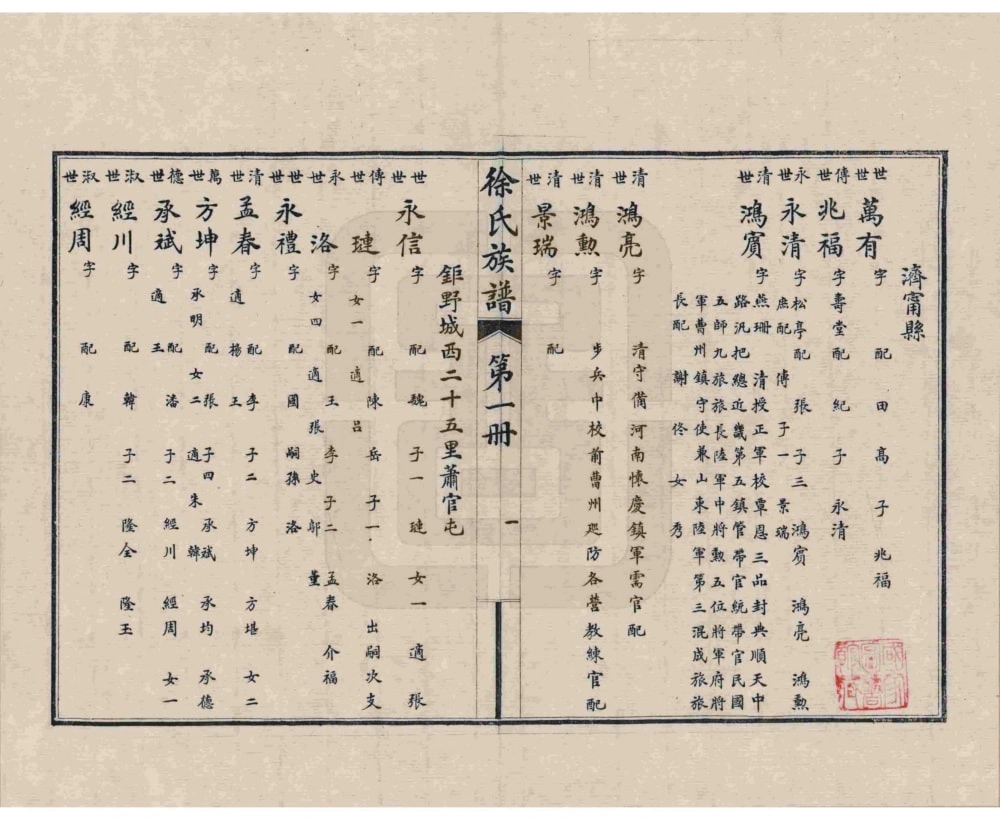 濟甯縣
世世 萬有 字 配 田 高 子 兆福
傳世 兆福 字 壽堂 配 紀 子 永清
永世 永清 字 松亭 配 張 子三 鴻賓 鴻亮 鴻勲
庶配 傅 子一 景瑞
清世 鴻賓 字 燕珊 清授正軍校覃恩三品封典順天中
路汛把總近畿第五鎮管帶官統帶官民國
五師九旅旅長陸軍中將勲五位將軍府將
軍曹州鎮守使兼山東陸軍第三混成旅旅
長配 謝 佟 女 秀
清世 鴻亮 字 清守備河南懷慶鎮軍需官配
清世 鴻勲 字 步兵中校前曹州廵防各營教練官配
清世 景瑞 字 配
徐氏族譜 第一冊 一
鉅野城西二十五里蕭官屯
世世 永信 字 配 魏 子一 璉 女一 適 張
傳世 璉 字 配 陳 岳 子一 洛 出嗣次支
女一 適 吕
永世 洛 字 配 王 李 子二 孟春 介福
女四 適 張 史 鄔 董
世世 永禮 字 配 國 嗣孫 洛
清世 孟春 字 配 李 子二 方坤 方堪 女二
適 楊 王
萬世 方坤 字 承明 配 張 子四 承斌 承均 承德
女二 適 朱 韓
德世 承斌 字 配 潘 子二 經川 經周 女一
適 王
淑世 經川 字 配 韓 子二 隆全 隆玉
淑世 經周 字 配 康